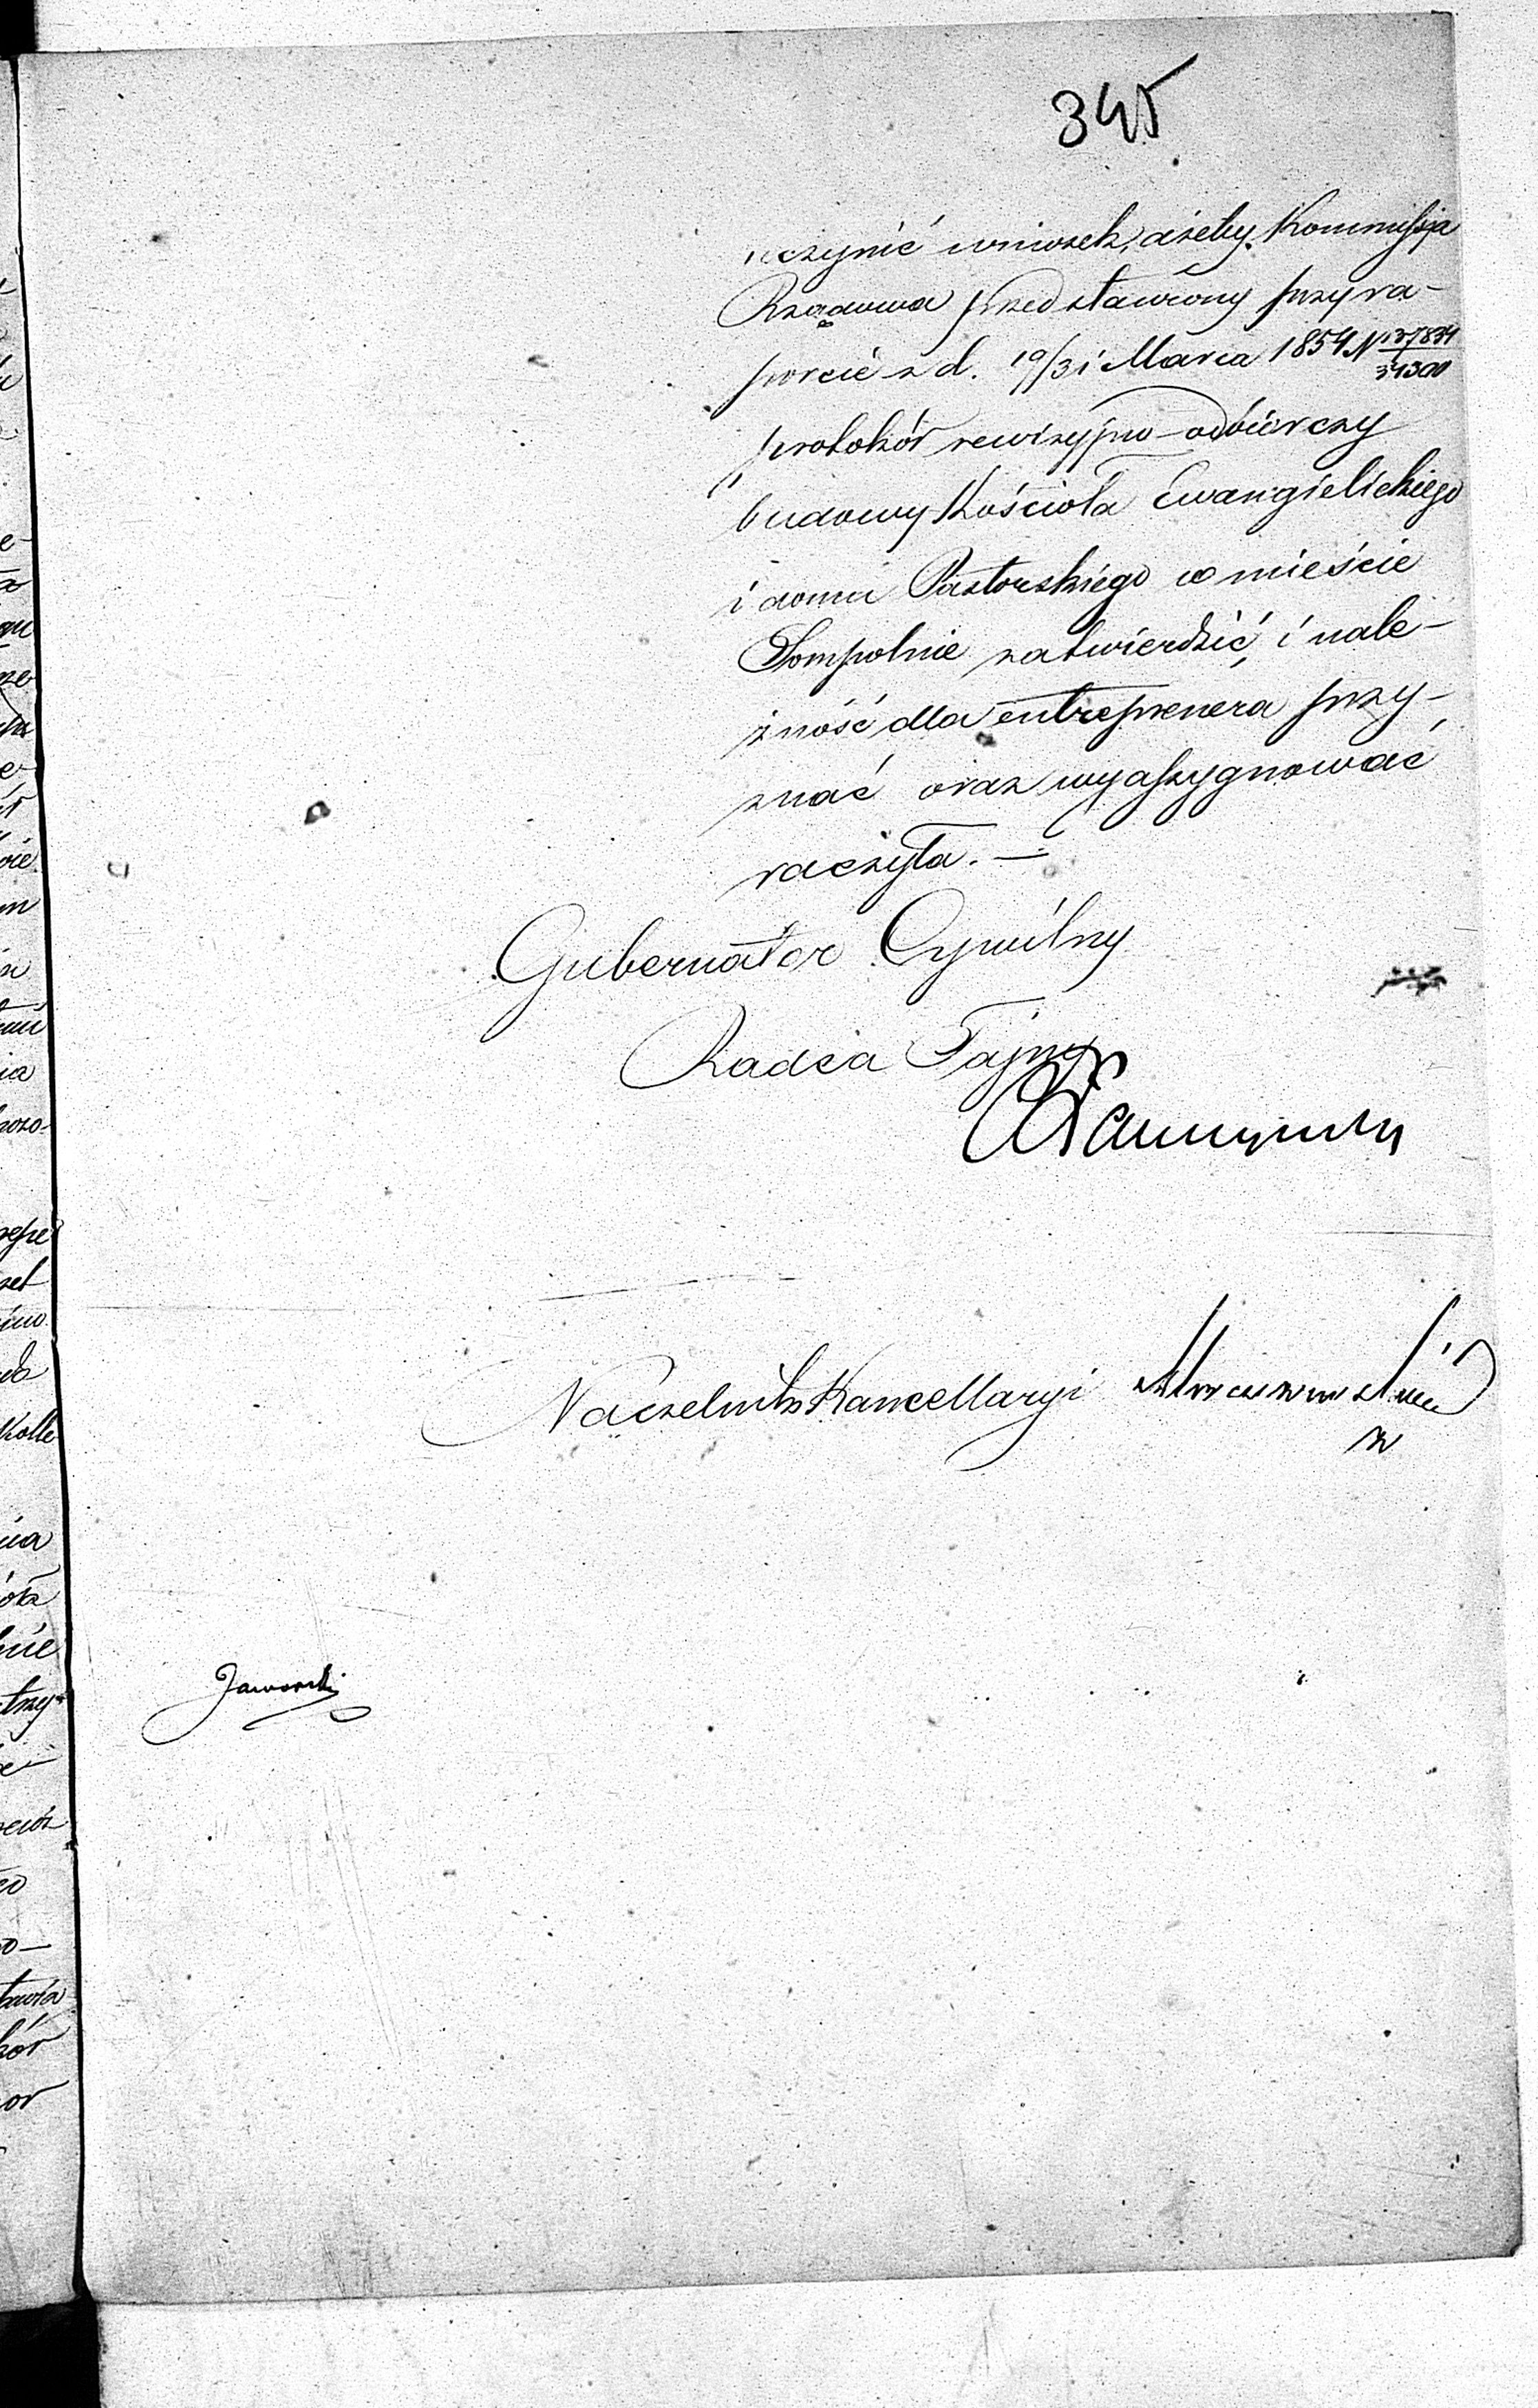 345
uczynić wniosek, ażeby Kommissja
Rządowa przedstawiony przy ra-
porcie z d. 19/31 Marca 1854 N
34300
protokół rewizyjno-odbiorczy
budowy Kościoła Ewangielickiego
i domu Pastorskiego w mieście
Sompolnie zatwierdzić i nale-
żność dla entreprenera przy-
znać oraz wyassygnować
raczyła. —
Gubernator Cywilny
Radca Tajny
Naczelnik Kancellaryi
Jaworski